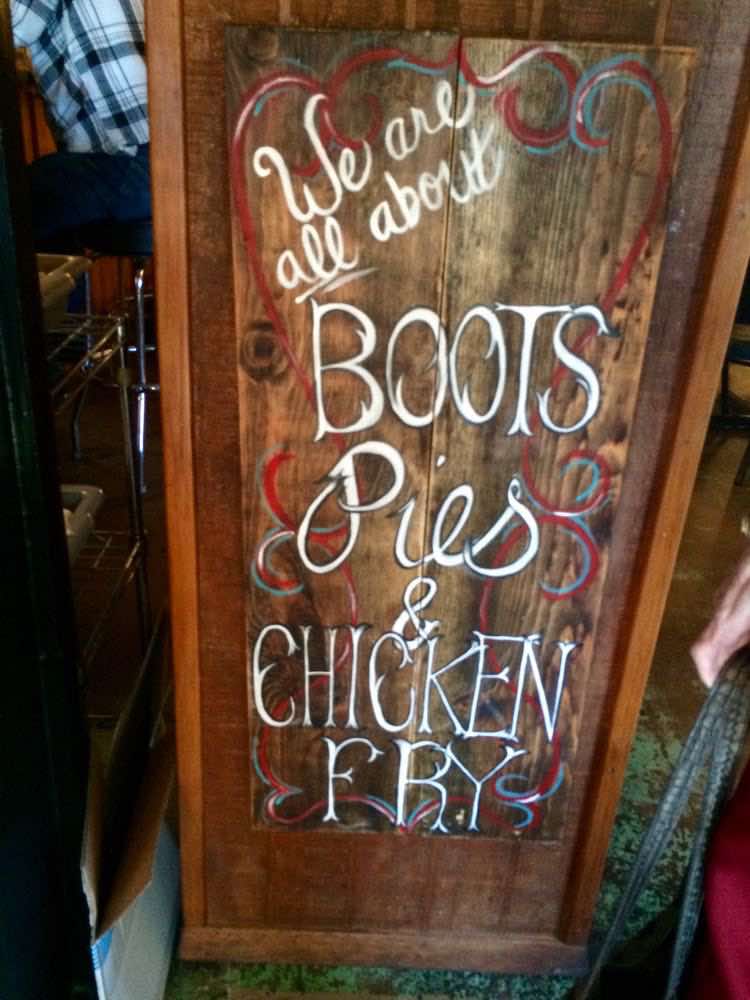 We are
all about
BOOTS
Pies
&
CHICKEN
FRY